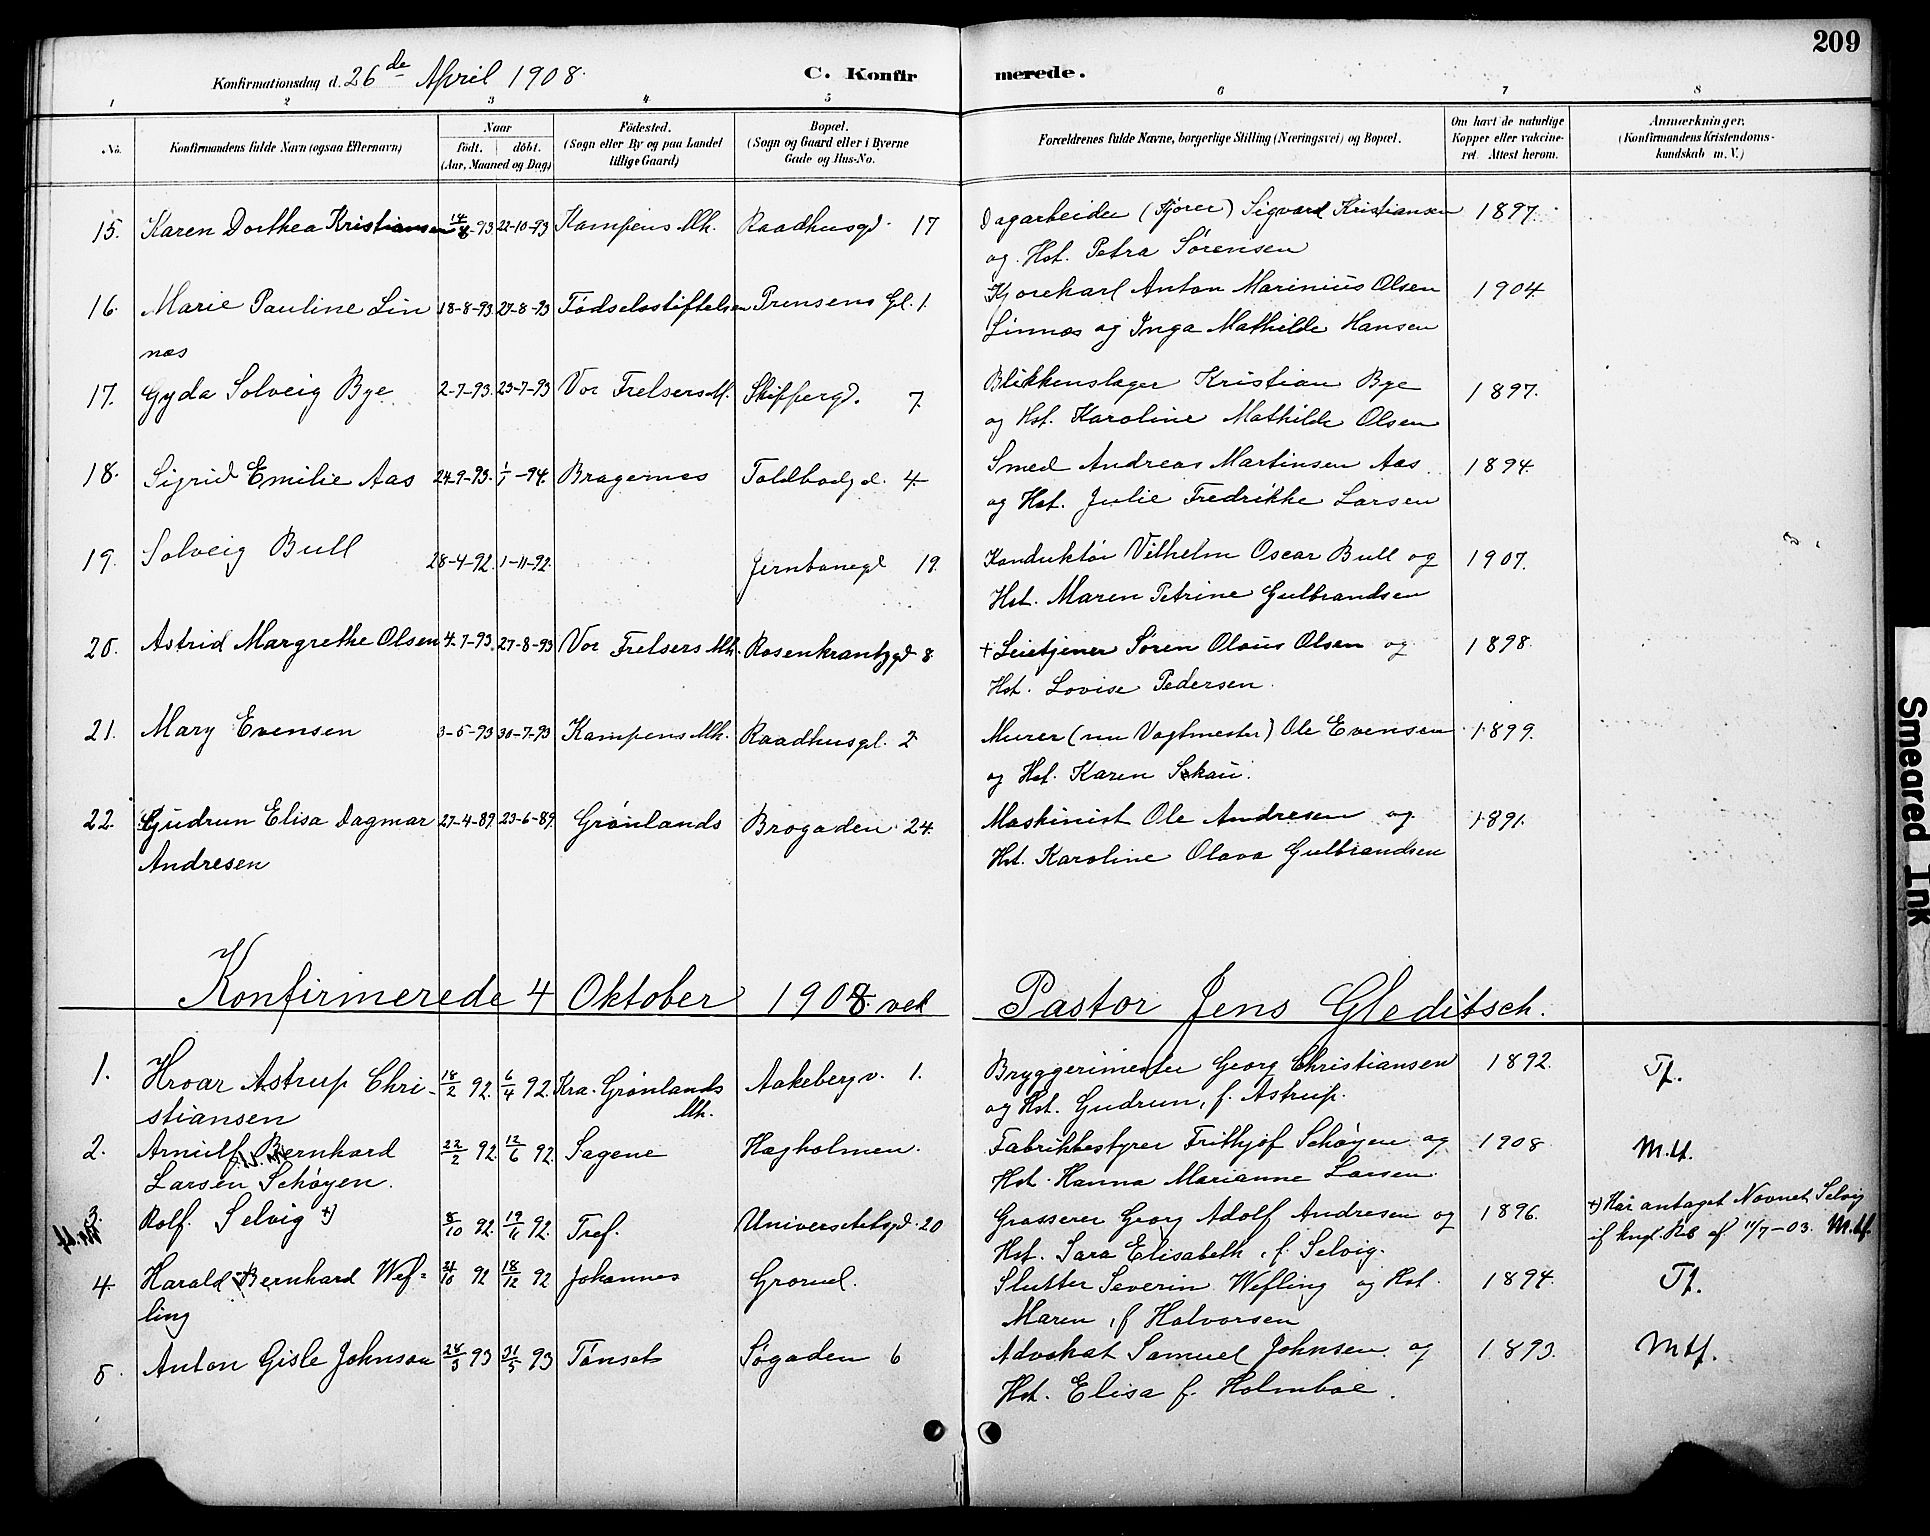 209
Konfirmationsdag d. 26de April 1908.
C. Konfirmerede.
1 2 3 4 5 6 7 8
No.
Konfirmandens fulde Navn (ogsaa Efternavn)
Naar
født. døbt.
(Aar, Maaned og Dag)
Födested.
(Sogn eller By og paa Landet
tillige Gaard)
Bopæl.
(Sogn og Gaard eller i Byerne
Gade og Hus-No.
Forældrenes fulde Navne, borgerlige Stilling (Næringsvei) og Bopæl.
Om havt de naturlige
Kopper eller vakcine-
ret. Attest herom.
Anmærkninger.
(Konfirmandens Kristendoms-
kundskab m. V.)
15. Karen Dorthea Kristiansen 14/8-93 22-10-93 Kampens Mh. Raadhusgd. 17 Dagarbeider (Kjører) Sigvard Kristiansen 1897.
og Hst. Petra Sørensen
16. Marie Pauline Lin 18-8-93. 27-8-93 Fødselsstiftelsen Prinsens Gd. 1. Kjørekarl Anton Marinius Olsen 1904.
næs Linnæs og Inga Mathilde Hansen
17. Gyda Solveig Bye 2-7-93. 23-7-93 Vor Frelsers M. Skippergd. 7. Blikkenslager Kristian Bye 1897.
og Hst. Karoline Mathilde Olsen
18. Sigrid Emilie Aas 24-9-93. 1/1-94. Bragernes Toldbodgd. 4. Smed Andreas Martinsen Aas 1894.
og Hst. Julie Fredrikke Larsen
19. Solveig Bull 28-4-92. 1-11-92. Jernbanegd 19. Konduktør Vilhelm Oscar Bull og 1907.
Hst. Maren Petrine Gulbrandsen
20. Astrid Margrethe Olsen 4-7-93. 27-8-93 Vor Frelsers Mh. Rosenkrantzgd 8. + Leietjener Søren Olaus Olsen og 1898.
Hst. Lovise Pedersen.
21. Mary Evensen 3-5-93 30-7-93 Kampens Mh. Raadhusgd. 2 Murer (nu Vagtmester) Ole Evensen 1899.
og Hst. Karen Skau.
22. Gudrun Elisa Dagmar 27-4-89. 23-6-89. Grønlands Brogaden 24. Maskinist Ole Andresen og 1891.
Andresen Hst. Karoline Olava Gulbrandsen
Konfirmerede 4 Oktober 1908. ved Pastor Jens Gleditsch.
1. Hroar Astrup Chri- 18/2 92. 6/4 92. Kra. Grønlands Aakebergv. 1. Bryggerimester Georg Christiansen 1892. Tf.
stiansen Mh. og Hst. Gudrun, f. Astrup.
2. Arnulf Bernhard 22/2 92. 12/6 92. Sagene Hægholmen. Fabrikbestyrer Frithjof Schøyen og 1908. M.tf.
Larsen Schøyen. Hst. Hanna Marianne Larsen.
3. Rolf Selvig +) 8/10 92. 19/11 92. Tref. Universitetsgd. 20 Grosserer Georg Adolf Andresen og 1896. +) Har antaget Navnet Selvig
Hst. Sara Elisabeth, f. Selvig. if kngl. Res af 11/7-03. M.tf.
4. Harald Bernhard Wef- 21/10 92 18/12 92 Johannes Grorud. Slutter Severin Wefling og Hst. 1894. Tf.
ling Maren, f Halvorsen
5. Anton Gisle Johnson 28/3 93 31/5 93 Tønset Søgaden 6 Advokat Samuel Johnsen og 1893. Mtf.
Hst. Elisa f. Holmboe.
Smeared Ink